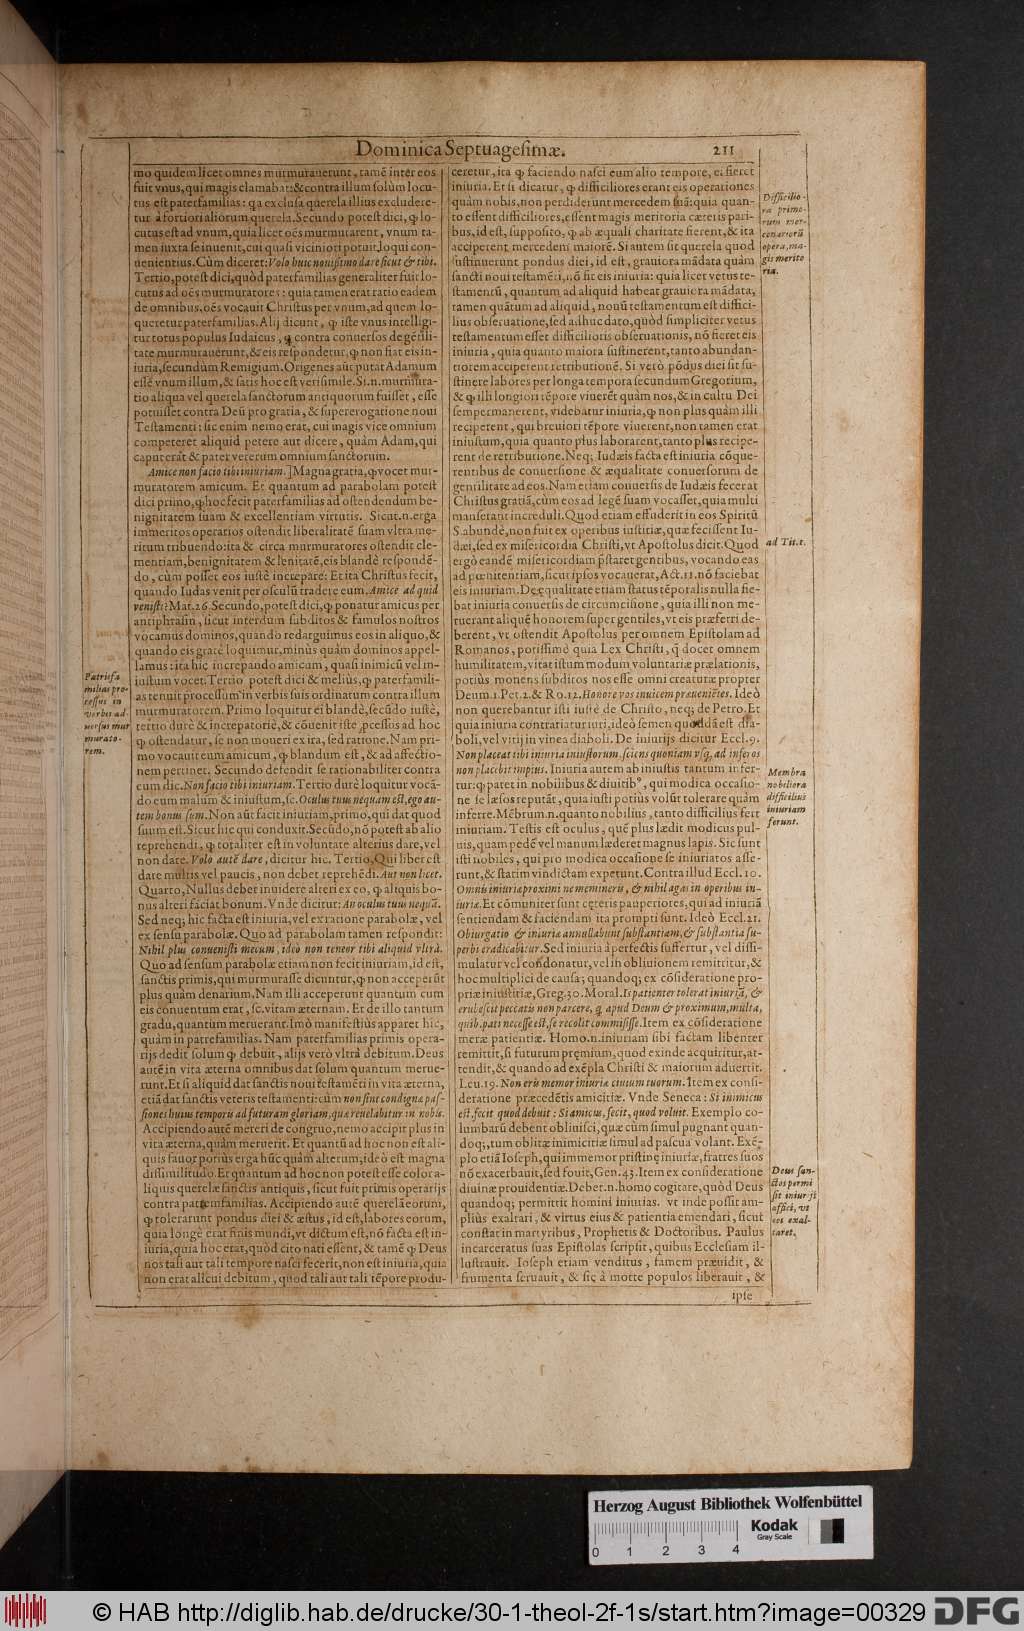 Dominica Septuagesimæ. 211
mo quidem licet omnes murmurauerunt, tamē inter eos
fuit vnus, qui magis clamabat: & contra illum solùm locu-
tus est paterfamilias: qa exclusa querela illius excludere-
tur à fortiori aliorum querela. Secundo potest dici, ꝙ lo-
cutus est ad vnum, quia licet oēs murmurarent, vnum ta-
men iuxta se inuenit, cui quasi viciniori potuit loqui con-
uenientius. Cùm diceret: Volo huic nouissimo dare sicut & tibi.
Tertio, potest dici, quòd paterfamilias generaliter fuit lo-
cutus ad oēs murmuratores: quia tamen erat ratio eadem
de omnibus, oēs vocauit Christus per vnum, ad quem lo-
queretur paterfamilias. Alij dicunt, ꝙ iste vnus intelligi-
tur totus populus Iudaicus, q contra conuersos de gētili-
tate murmurauerunt, & eis respondetur, ꝙ non fiat eis in-
iuria, secundùm Remigium. Origenes aūt putat Adamum
esse vnum illum, & satis hoc est verisimile. Si.n. murmura-
tio aliqua vel querela sanctorum antiquorum fuisset, esse
potuisset contra Deū pro gratia, & supererogatione noui
Testamenti: sic enim nemo erat, cui magis vice omnium
competeret aliquid petere aut dicere, quàm Adam, qui
caput erāt & pater veterum omnium sanctorum.
Amice non facio tibi iniuriam.] Magna gratia, ꝙ vocet mur-
muratorem amicum. Et quantum ad parabolam potest
dici primo, ꝙ hoc fecit paterfamilias ad ostendendum be-
nignitatem suam & excellentiam virtutis. Sicut.n. erga
immeritos operarios ostendit liberalitatē suam vltra me-
ritum tribuendo: ita & circa murmuratores ostendit cle-
mentiam, benignitatem & lenitatē, eis blandè respondē-
do, cùm posset eos iustè increpare: Et ita Christus fecit,
quando Iudas venit per osculū tradere eum. Amice ad quid
venisti? Mat. 26. Secundo, potest dici, ꝙ ponatur amicus per
antiphrasin, sicut interdum subditos & famulos nostros
vocamus dominos, quando redarguimus eos in aliquo, &
quando eis gratè loquimur, minùs quàm dominos appel-
lamus: ita hic increpando amicum, quasi inimicū vel in-
iustum vocet. Tertio potest dici & meliùs, ꝙ paterfamili-
as tenuit processum in verbis suis ordinatum contra illum
murmuratorem. Primo loquitur ei blandè, secūdo iustè,
tertio durè & increpatoriè, & cōuenit iste processus ad hoc
ꝙ ostendatur, se non moueri ex ira, sed ratione. Nam pri-
mo vocauit eum amicum, ꝙ blandum est, & ad affectio-
nem pertinet. Secundo defendit se rationabiliter contra
eum dic. Non facio tibi iniuriam. Tertio durè loquitur vocā-
do eum malum & iniustum, sc. Oculus tuus nequam est, ego au-
tem bonus sum. Non aūt facit iniuriam, primo, qui dat quod
suum est. Sicut hic qui conduxit. Secūdo, nō potest ab alio
reprehendi, ꝙ totaliter est in voluntate alterius dare, vel
non dare. Volo autē dare, dicitur hic. Tertio, Qui liber est
dare multis vel paucis, non debet reprehēdi. Aut non licet.
Quarto, Nullus debet inuidere alteri ex eo, ꝙ aliquis bo-
nus alteri faciat bonum. Vnde dicitur: An oculus tuus nequā.
Sed neq; hic facta est iniuria, vel ex ratione parabolæ, vel
ex sensu parabolæ. Quo ad parabolam tamen respondit:
Nihil plus conuenisti mecum, ideò non teneor tibi aliquid vltrà.
Quo ad sensum parabolæ etiam non fecit iniuriam, id est,
sanctis primis, qui murmurasse dicuntur, ꝙ non acceperūt
plus quàm denarium. Nam illi acceperunt quantum cum
eis conuentum erat, sc. vitam æternam. Et de illo tantum
gradu, quantum meruerant. Imò manifestius apparet hic,
quàm in patrefamilias. Nam paterfamilias primis opera-
rijs dedit solùm ꝙ debuit, alijs verò vltrà debitum. Deus
autē in vita æterna omnibus dat solum quantum merue-
runt. Et si aliquid dat sanctis noui testamēti in vita æterna,
etiā dat sanctis veteris testamenti: cùm non sint condignæ pas-
siones huius temporis ad futuram gloriam, quæ reuelabitur in nobis.
Accipiendo autē mereri de congruo, nemo accipit plus in
vita æterna, quàm meruerit. Et quantū ad hoc non est ali-
quis fauor potiùs erga hūc quàm alterum, ideò est magna
dissimilitudo. Et quantum ad hoc non potest esse colora-
liquis querelæ sanctis antiquis, sicut fuit primis operarijs
contra patremfamilias. Accipiendo autē querelā eorum,
ꝙ tolerarunt pondus diei & æstus, id est, labores eorum,
quia longè erat finis mundi, vt dictum est, nō facta est in-
iuria, quia hoc erat, quòd cito nati essent, & tamē ꝙ Deus
nos tali aut tali tempore nasci fecerit, non est iniuria, quia
non erat alicui debitum, quod tali aut tali tēpore produ-
Patrisfa
milias pro-
cessus in
verbis ad-
uersus mur
murato-
rem.
ceretur, ita ꝙ faciendo nasci eum alio tempore, ei fieret
iniuria. Et si dicatur, ꝙ difficiliores erant eis operationes
quàm nobis, non perdiderunt mercedem suā: quia quan-
to essent difficiliores, essent magis meritoria cæteris pari-
bus, id est, supposito, ꝙ ab æquali charitate fierent, & ita
acciperent mercedem maiorē. Si autem sit querela quod
sustinuerunt pondus diei, id est, grauiora mādata quàm
sancti noui testamēti, nō fit eis iniuria: quia licet vetus te-
stamentū, quantum ad aliquid habeat grauiora mādata,
tamen quātum ad aliquid, nouū testamentum est diffici-
lius obseruatione, sed adhuc dato, quòd simpliciter vetus
testamentum esset difficilioris obseruationis, nō fieret eis
iniuria, quia quanto maiora sustinerent, tanto abundan-
tiorem acciperent retributionē. Si verò pōdus diei sit su-
stinere labores per longa tempora secundum Gregorium,
& ꝙ illi longiori tēpore viuerēt quàm nos, & in cultu Dei
semper manerent, videbatur iniuria, ꝙ non plus quàm illi
reciperent, qui breuiori tēpore viuerent, non tamen erat
iniustum, quia quanto plus laborarent, tanto plus recipe-
rent de retributione. Neq; Iudæis facta est iniuria cōque-
rentibus de conuersione & æqualitate conuersorum de
gentilitate ad eos. Nam etiam conuersis de Iudæis fecerat
Christus gratiā, cùm eos ad legē suam vocasset, quia multi
manserant increduli. Quod etiam effuderit in eos Spiritū
S. abundè, non fuit ex operibus iustitiæ, quæ fecissent Iu-
dæi, sed ex misericordia Christi, vt Apostolus dicit. Quod
ergò eandē misericordiam p̄staret gentibus, vocando eas
ad pœnitentiam, sicut ipsos vocauerat, Act. 11. nō faciebat
eis iniuriam. De ęqualitate etiam status tēporalis nulla fie-
bat iniuria conuersis de circumcisione, quia illi non me-
tuerant aliquē honorem super gentiles, vt eis præferri de-
berent, vt ostendit Apostolus per omnem Epistolam ad
Romanos, potissimè quia Lex Christi, q̄ docet omnem
humilitatem, vitat istum modum voluntariæ prælationis,
potiùs monens subditos nos esse omni creaturæ propter
Deum. 1 Pet. 2. & Ro. 12. Honore vos inuicem præuenietes. Ideò
non querebantur isti iustè de Christo, neq; de Petro. Et
quia iniuria contrariatur iuri, ideò semen quoddā est dia-
boli, vel vitij in vinea diaboli. De iniurijs dicitur Eccl. 9.
Non placeat tibi iniuria iniustorum, sciens quoniam vsq; ad inferos
non placebit impius. Iniuria autem ab iniustis tantum infer-
tur: ꝙ patet in nobilibus & diuitibꝰ, qui modica occasio-
ne se læsos reputāt, quia iusti potiùs volūt tolerare quàm
inferre. Mēbrum.n. quanto nobilius, tanto difficilius fert
iniuriam. Testis est oculus, quē plus lædit modicus pul-
uis, quam pedē vel manum læderet magnus lapis. Sic sunt
isti nobiles, qui pro modica occasione se iniuriatos asse-
runt, & statim vindictam expetunt. Contra illud Eccl. 10.
Omnis iniuria proximi ne memineris, & nihil agas in operibus in-
iuriæ. Et cōmuniter sunt ceteris pauperiores, qui ad iniuriā
sentiendam & faciendam ita prompti sunt. Ideò Eccl. 21.
Obiurgatio & iniuriæ annullabunt substantiam, & substantia su-
perbi eradicabitur. Sed iniuria à perfectis suffertur, vel dissi-
mulatur vel condonatur, vel in obliuionem remittitur, &
hoc multiplici de causa; quandoq; ex cōsideratione pro-
priæ iniustitiæ, Greg. 30. Moral. Is patienter tolerat iniuriā, &
erubescit peccatis non parcere, q apud Deum & proximum, multa,
quib. pati necesse est, se recolit commisisse. Item ex cōsideratione
meræ patientiæ. Homo.n. iniuriam sibi factam libenter
remittit, si futurum pręmium, quod exinde acquiritur, at-
tendit, & quando ad exēpla Christi & maiorum aduertit.
Leu. 19. Non eris memor iniuriæ ciuium tuorum. Item ex consi-
deratione præcedētis amicitiæ. Vnde Seneca: Si inimicus
est, fecit quod debuit: Si amicus, fecit, quod voluit. Exemplo co-
lumbarū debent obliuisci, quæ cùm simul pugnant quan-
doq;, tum oblitæ inimicitiæ simul ad pascua volant. Exē-
plo etiā Ioseph, qui immemor pristinę iniuriæ, fratres suos
nō exacerbauit, sed fouit, Gen. 45. Item ex consideratione
diuinæ prouidentiæ. Debet.n. homo cogitare, quòd Deus
quandoq; permittit homini iniurias, vt inde possit am-
pliùs exaltari, & virtus eius & patientia emendari, sicut
constat in martyribus, Prophetis & Doctoribus. Paulus
incarceratus suas Epistolas scripsit, quibus Ecclesiam il-
lustrauit. Ioseph etiam venditus, famem præuidit, &
frumenta seruauit, & sic à morte populos liberauit, &
ipse
Difficilio-
ra primo-
rum mer-
cenariorū
opera, ma-
gis merito
ria.
ad Tit. 1.
Membra
nobiliora
difficilius
iniuriam
ferunt.
Deus san-
ctos permi
sit iniurijs
affici, vt
eos exal-
taret.
Herzog August Bibliothek Wolfenbüttel
Kodak
Gray Scale
0 1 2 3 4
© HAB http://diglib.hab.de/drucke/30-1-theol-2f-1s/start.htm?image=00329 DFG